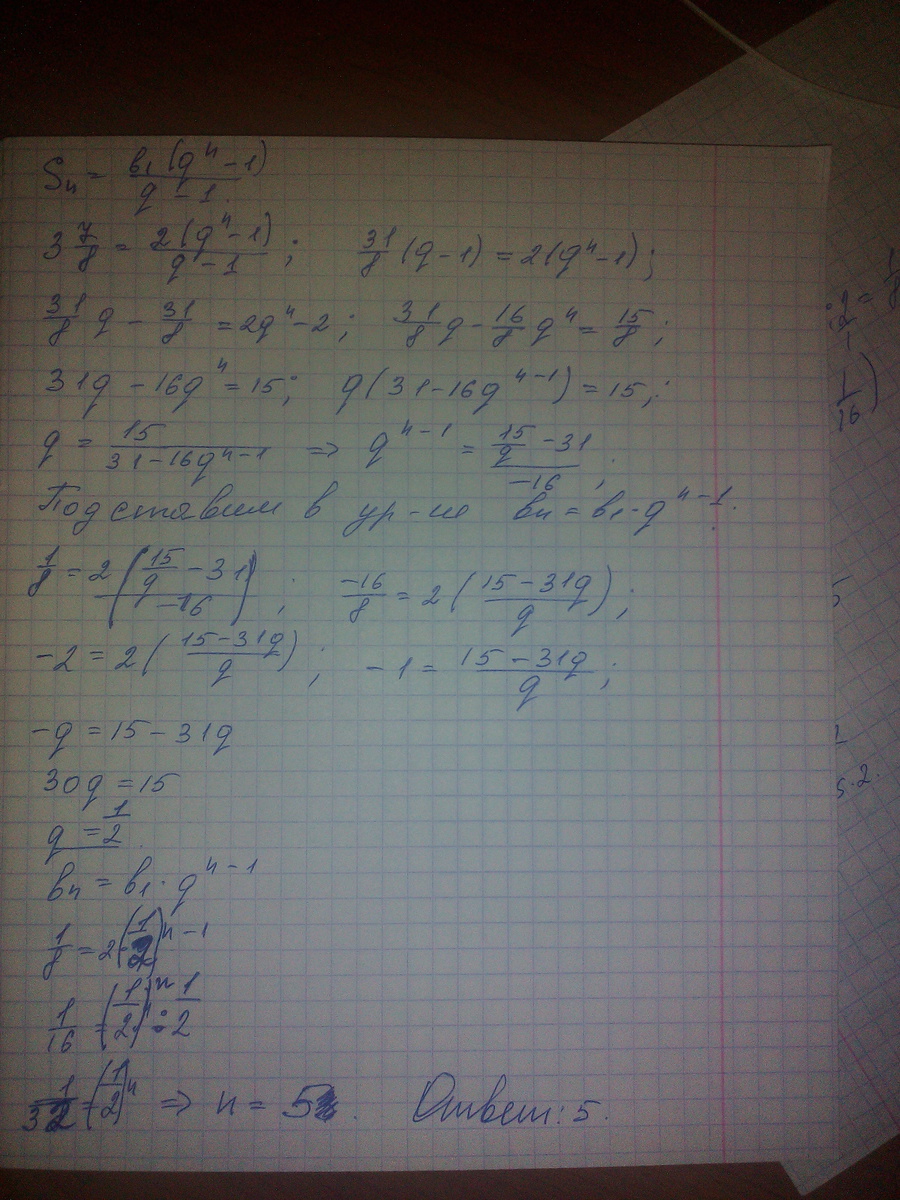 Sn = b₁(qⁿ - 1) / (q - 1)
3 7/8 = 2(qⁿ - 1) / (q - 1) ; 31/8 (q - 1) = 2(qⁿ - 1) ;
31/8 q - 31/8 = 2qⁿ - 2 ; 31/8 q - 16/8 qⁿ = 15/8 ;
31q - 16qⁿ = 15 ; q(31 - 16qⁿ⁻¹) = 15 ;
q = 15 / (31 - 16qⁿ⁻¹) ⇒ qⁿ⁻¹ = (15/q - 31) / -16 ;
Подставим в ур-ие bn = b₁ · qⁿ⁻¹.
1/8 = 2((15/q - 31) / -16) ; -16/8 = 2((15 - 31q) / q) ;
-2 = 2((15 - 31q) / q) ; -1 = (15 - 31q) / q ;
-q = 15 - 31q
30q = 15
q = 1/2.
bn = b₁ · qⁿ⁻¹
1/8 = 2(1/2)ⁿ⁻¹
1/16 = (1/2)ⁿ : 1/2
1/32 = (1/2)ⁿ ⇒ n = 5. Ответ: 5.